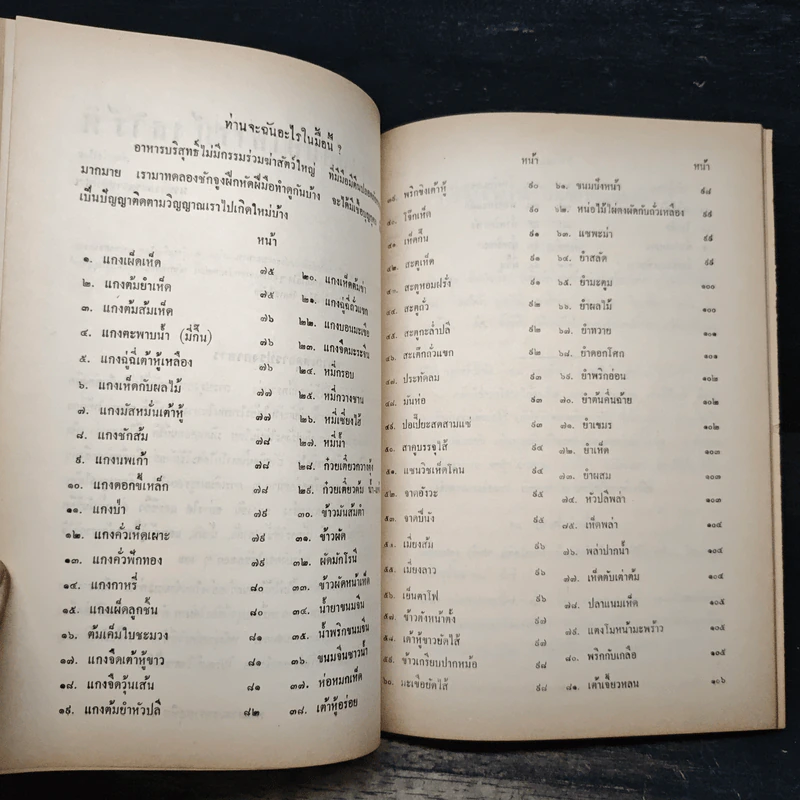 ท่านจะฉันอะไรในมื้อนี้ ?
อาหารบริสุทธิ์ไม่มีกรรมร่วมฆ่าสัตว์ใหญ่
มากมาย เรามาทดลองชักจูงฝึกหัดฝีมือทำดูกันบ้าง
เป็นปัญญาติดตามวิญญาณเราไปเกิดใหม่บ้าง
หน้า
๑. แกงเผ็ดเห็ด ๗๕
๒. แกงต้มยำเห็ด ๗๕
๓. แกงต้มส้มเห็ด ๗๖
๔. แกงตะพาบน้ำ (มี่กึน) ๗๖
๕. แกงฉู่ฉี่เต้าหู้เหลือง ๗๖
๖. แกงเห็ดกับผลไม้ ๗๗
๗. แกงมัสหมั่นเต้าหู้ ๗๗
๘. แกงชักส้ม ๗๘
๙. แกงนพเก้า ๗๘
๑๐. แกงดอกขี้เหล็ก ๗๘
๑๑. แกงป่า ๗๙
๑๒. แกงคั่วเห็ดเผาะ ๗๙
๑๓. แกงคั่วฟักทอง ๗๙
๑๔. แกงกาหรี่ ๘๐
๑๕. แกงเผ็ดลูกชิ้น ๘๐
๑๖. ต้มเค็มใบชะมวง ๘๑
๑๗. แกงจืดเต้าหู้ขาว ๘๑
๑๘. แกงจืดวุ้นเส้น ๘๑
๑๙. แกงต้มยำหัวปลี ๘๒
๒๐. แกงเห็ดต้มข่า
๒๑. แกงฉู่ฉี่ถั่วแขก
๒๒. แกงบอนมะเขือ
๒๓. แกงจืดมะระจีน
๒๔. หมี่กรอบ
๒๕. หมี่กวางขาน
๒๖. หมี่เซี่ยงไฮ้
๒๗. หมี่น้ำ
๒๘. ก๋วยเตี๋ยวกวางตุ้ง
๒๙. ก๋วยเตี๋ยวต้ม
๓๐. ข้าวมันส้มตำ
๓๑. ข้าวผัด
๓๒. ผัดมักโรนี
๓๓. ข้าวผัดหน้าเห็ด
๓๔. น้ำยาขนมจีน
๓๕. น้ำพริกขนมจีน
๓๖. ขนมจีนซาวน้ำ
๓๗. ห่อหมกเห็ด
๓๘. เต้าหู้อร่อย
หน้า
๓๙. พริกขิงเต้าหู้ ๙๐
๔๐. โจ๊กเห็ด ๙๐
๔๑. เห็ดกึ๋น ๙๑
๔๒. สะตูเห็ด ๙๑
๔๓. สะตูหอมฝรั่ง ๙๑
๔๔. สะตูถั่ว ๙๒
๔๕. สะตูกะล่ำปลี ๙๒
๔๖. สะเต๊กถั่วแขก ๙๒
๔๗. ประทัดลม ๙๓
๔๘. มันห่อ ๙๓
๔๙. ปอเปี๊ยะสดสามแซ่ ๙๔
๕๐. สาคูบรรจุไส้ ๙๔
๕๑. แซนวิชเห็ดโคน ๙๔
๕๒. จาดอังวะ ๙๕
๕๓. จาดปีนัง ๙๕
๕๔. เมี่ยงส้ม ๙๖
๕๕. เมี่ยงลาว ๙๖
๕๖. เย็นตาโฟ ๙๖
๕๗. ข้าวตังหน้าตั้ง ๙๗
๕๘. เต้าหู้ขาวยัดไส้ ๙๗
๕๙. ข้าวเกรียบปากหม้อ ๙๗
๖๐. มะเขือยัดไส้ ๙๘
หน้า
๖๑. ขนมนึ่งหน้า ๙๘
๖๒. หน่อไม้ไผ่ตงผัดกับถั่วเหลือง ๙๙
๖๓. แซพะม่า ๙๙
๖๔. ยำสลัด ๙๙
๖๕. ยำมะตูม ๑๐๐
๖๖. ยำผลไม้ ๑๐๐
๖๗. ยำทวาย ๑๐๑
๖๘. ยำดอกโศก ๑๐๑
๖๙. ยำพริกอ่อน ๑๐๒
๗๐. ยำต้นคื่นฉ่าย ๑๐๒
๗๑. ยำเขมร ๑๐๒
๗๒. ยำเห็ด ๑๐๓
๗๓. ยำผสม ๑๐๓
๗๔. หัวปลีพล่า ๑๐๓
๗๕. เห็ดพล่า ๑๐๔
๗๖. พล่าปากน้ำ ๑๐๔
๗๗. เห็ดตับเต่าต้ม ๑๐๔
๗๘. ปลาแนมเห็ด ๑๐๕
๗๙. แตงโมหน้ามะพร้าว ๑๐๕
๘๐. พริกกับเกลือ ๑๐๕
๘๑. เต้าเจี้ยวหลน ๑๐๖